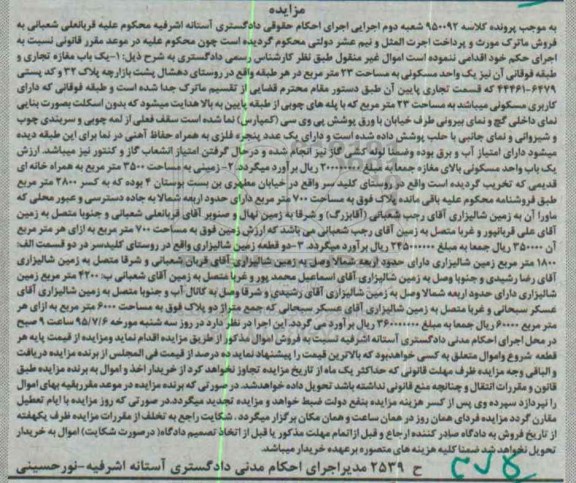 مزایده
به موجب پرونده کلاسه ۹۵۰۰۹۲ شعبه دوم اجرایی اجرای احکام حقوقی دادگستری آستانه اشرفیه محکوم علیه قربانعلی شعبانی به
فروش ماترک مورث و پرداخت اجرت المثل و نیم عشر دولتی محکوم گردیده است چون محکوم علیه در موعد مقرر قانونی نسبت به
اجرای حکم خود اقدامی ننموده است اموال غیر منقول طبق نظر کارشناس رسمی دادگستری به شرح ذیل: ۱-یک باب مغازه تجاری و
طبقه فوقانی آن نیز یک واحد مسکونی به مساحت ۲۳ متر مربع در هر طبقه واقع در روستای دهشال پشت بازارچه پلاک ۳۲ و کد پستی
۴۴۴۶۱-۶۴۷۹ که قسمت تجاری پایین آن طبق دستور مقام محترم قضایی از تقسیم ماترک جدا شده است و طبقه فوقانی که دارای
کاربری مسکونی میباشد به مساحت ۲۳ متر مربع که با پله های چوبی از طبقه پایین به بالا هدایت میشود که بدون اسکلت بصورت بنایی
نمای داخلی گچ و نمای بیرونی طرف خیابان با ورق پوشش پی وی سی (کمپارس) نما شده است سقف فعلی از لمه چوبی و سربندی چوب
و شیروانی و نمای جانبی با حلب پوشش داده شده است و دارای یک عدد پنجره فلزی به همراه حفاظ آهنی در نما برای این طبقه دیده
میشود دارای امتیاز آب و برق بوده وضمنا لوله کشی گاز نیز انجام شده و درحال گرفتن امتیاز انشعاب گاز و کنتور نیز میباشد. ارزش
یک باب واحد مسکونی بالای مغازه جمعا به مبلغ ریال برآورد میگردد. ۲- زمینی به مساحت ۳۵۰۰ متر مربع به همراه خانه ای
قدیمی که تخریب گردیده است واقع در روستای کلید سر واقع در خیابان مطهری بن بست بوستان ۴ بوده که به کسر ۲۸۰۰ متر مربع
طبق فروشنامه محکوم علیه باقی مانده پلاک فوق به مساحت ۷۰۰ متر مربع دارای حدود اربعه شمالا به جاده دسترسی و عبور محلی که
ماورا آن به زمین شالیزاری آقای رجب شعبانی (آقابزرگ) و شرقا به زمین نهال و صنوبر آقای قربانعلی شعبانی و جنوبا متصل به زمین
آقای علی قربانپور و غربا متصل به زمین آقای رجب شعبانی می باشد که ارزش زمین فوق به مساحت ۷۰۰ متر مربع به ازای هر متر مربع
آن ۳۵۰۰۰۰ ریال جمعا به مبلغ ۲۴۵۰۰۰۰۰۰ ریال برآورد میگردد. ۳-دو قطعه زمین شالیزاری واقع در روستای کلیدسر در دو قسمت الف:
۱۸۰۰ متر مربع زمین شالیزاری دارای حدود اربعه شمالا وصل به زمین شالیزاری آقای قربان شعبانی و شرقا متصل به زمین شالیزاری
آقای رضا رشیدی و جنوبا وصل به زمین شالیزاری آقای اسماعیل محمد پور و غربا متصل به زمین آقای شعبانی ب: ۴۲۰۰ متر مربع زمین
شالیزاری دارای حدود اربعه شمالا وصل به زمین شالیزاری آقای رشیدی و شرقا وصل به کانال آب و جنوبا متصل به زمین شالیزاری آقای
عسکر سبحانی و غربا متصل به زمین شالیزاری آقای عسکر سبحانی که جمع متراژ دو پلاک فوق به مساحت ۶۰۰۰ متر مربع به ازای هر
متر مربع ۶۰۰۰۰ ریال جمعا به مبلغ ۳۶۰۰۰۰۰۰۰ ریال برآورد می گردد. این اجرا در نظر دارد در روز سه شنبه مورخه ۹۵/۷/۶ ساعت ۹ صبح
در محل اجرای احکام مدنی دادگستری آستانه اشرفیه نسبت به فروش اموال مذکور از طریق مزایده اقدام نماید ومزایده از قیمت پایه هر
قطعه شروع واموال متعلق به کسی خواهدبود که بالاترین قیمت را پیشنهاد نماید. ده درصد از قیمت فی المجلس از برنده مزایده دریافت
و الباقی وجه مزایده ظرف مهلت قانونی که حداکثر یک ماه از تاریخ مزایده تجاوز نخواهد کرد از خریدار اخذ و اموال به برنده مزایده طبق
قانون و مقررات انتقال و چنانچه منع قانونی نداشته باشد تحویل داده خواهدشد. در صورتی که برنده مزایده در موعد مقرربقیه بهای اموال
را نپردازد سپرده وی پس از کسر هزینه مزایده بنفع دولت ضبط خواهد و مزایده تجدید میگردد.در صورتی که روز مزایده با ایام تعطیل
مقارن گردد مزایده فردای همان روز در همان ساعت و همان مکان برگزار میگردد. شکایت راجع به تخلف از مقررات مزایده ظرف یکهفته
از تاریخ فروش به دادگاه صادر کننده ارجاع و قبل ازاتمام مهلت مذکور یا قبل از اتخاذ تصمیم دادگاه( درصورت شکایت) اموال به خریدار
تحویل نخواهد شد ضمنا کلیه هزینه های متصوره برعهده خریدار میباشد.
ح ۲۵۳۹ مدیراجرای احکام مدنی دادگستری آستانه اشرفیه-نورحسینی